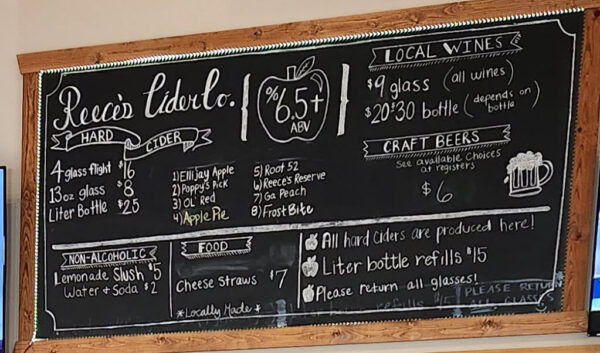 Reece's Cider Co.
HARD CIDER
4 glass flight $16
13 oz glass $8
Liter Bottle $25
% 6.5+
ABV
1) Ellijay Apple
2) Poppy's Pick
3) OL' Red
4) Apple Pie
5) Root 52
6) Reece's Reserve
7) Ga Peach
8) Frost Bite
LOCAL WINES
$9 glass (all wines)
$20-$30 bottle (depends on bottle)
CRAFT BEERS
See available choices
at registers
$6
NON-ALCOHOLIC
Lemonade Slush $5
Water + Soda $2
FOOD
Cheese Straws $7
*Locally Made*
All hard ciders are produced here!
Liter bottle refills $15
Please return all glasses!
refills $15
PLEASE RETURN
ALL GLASSES